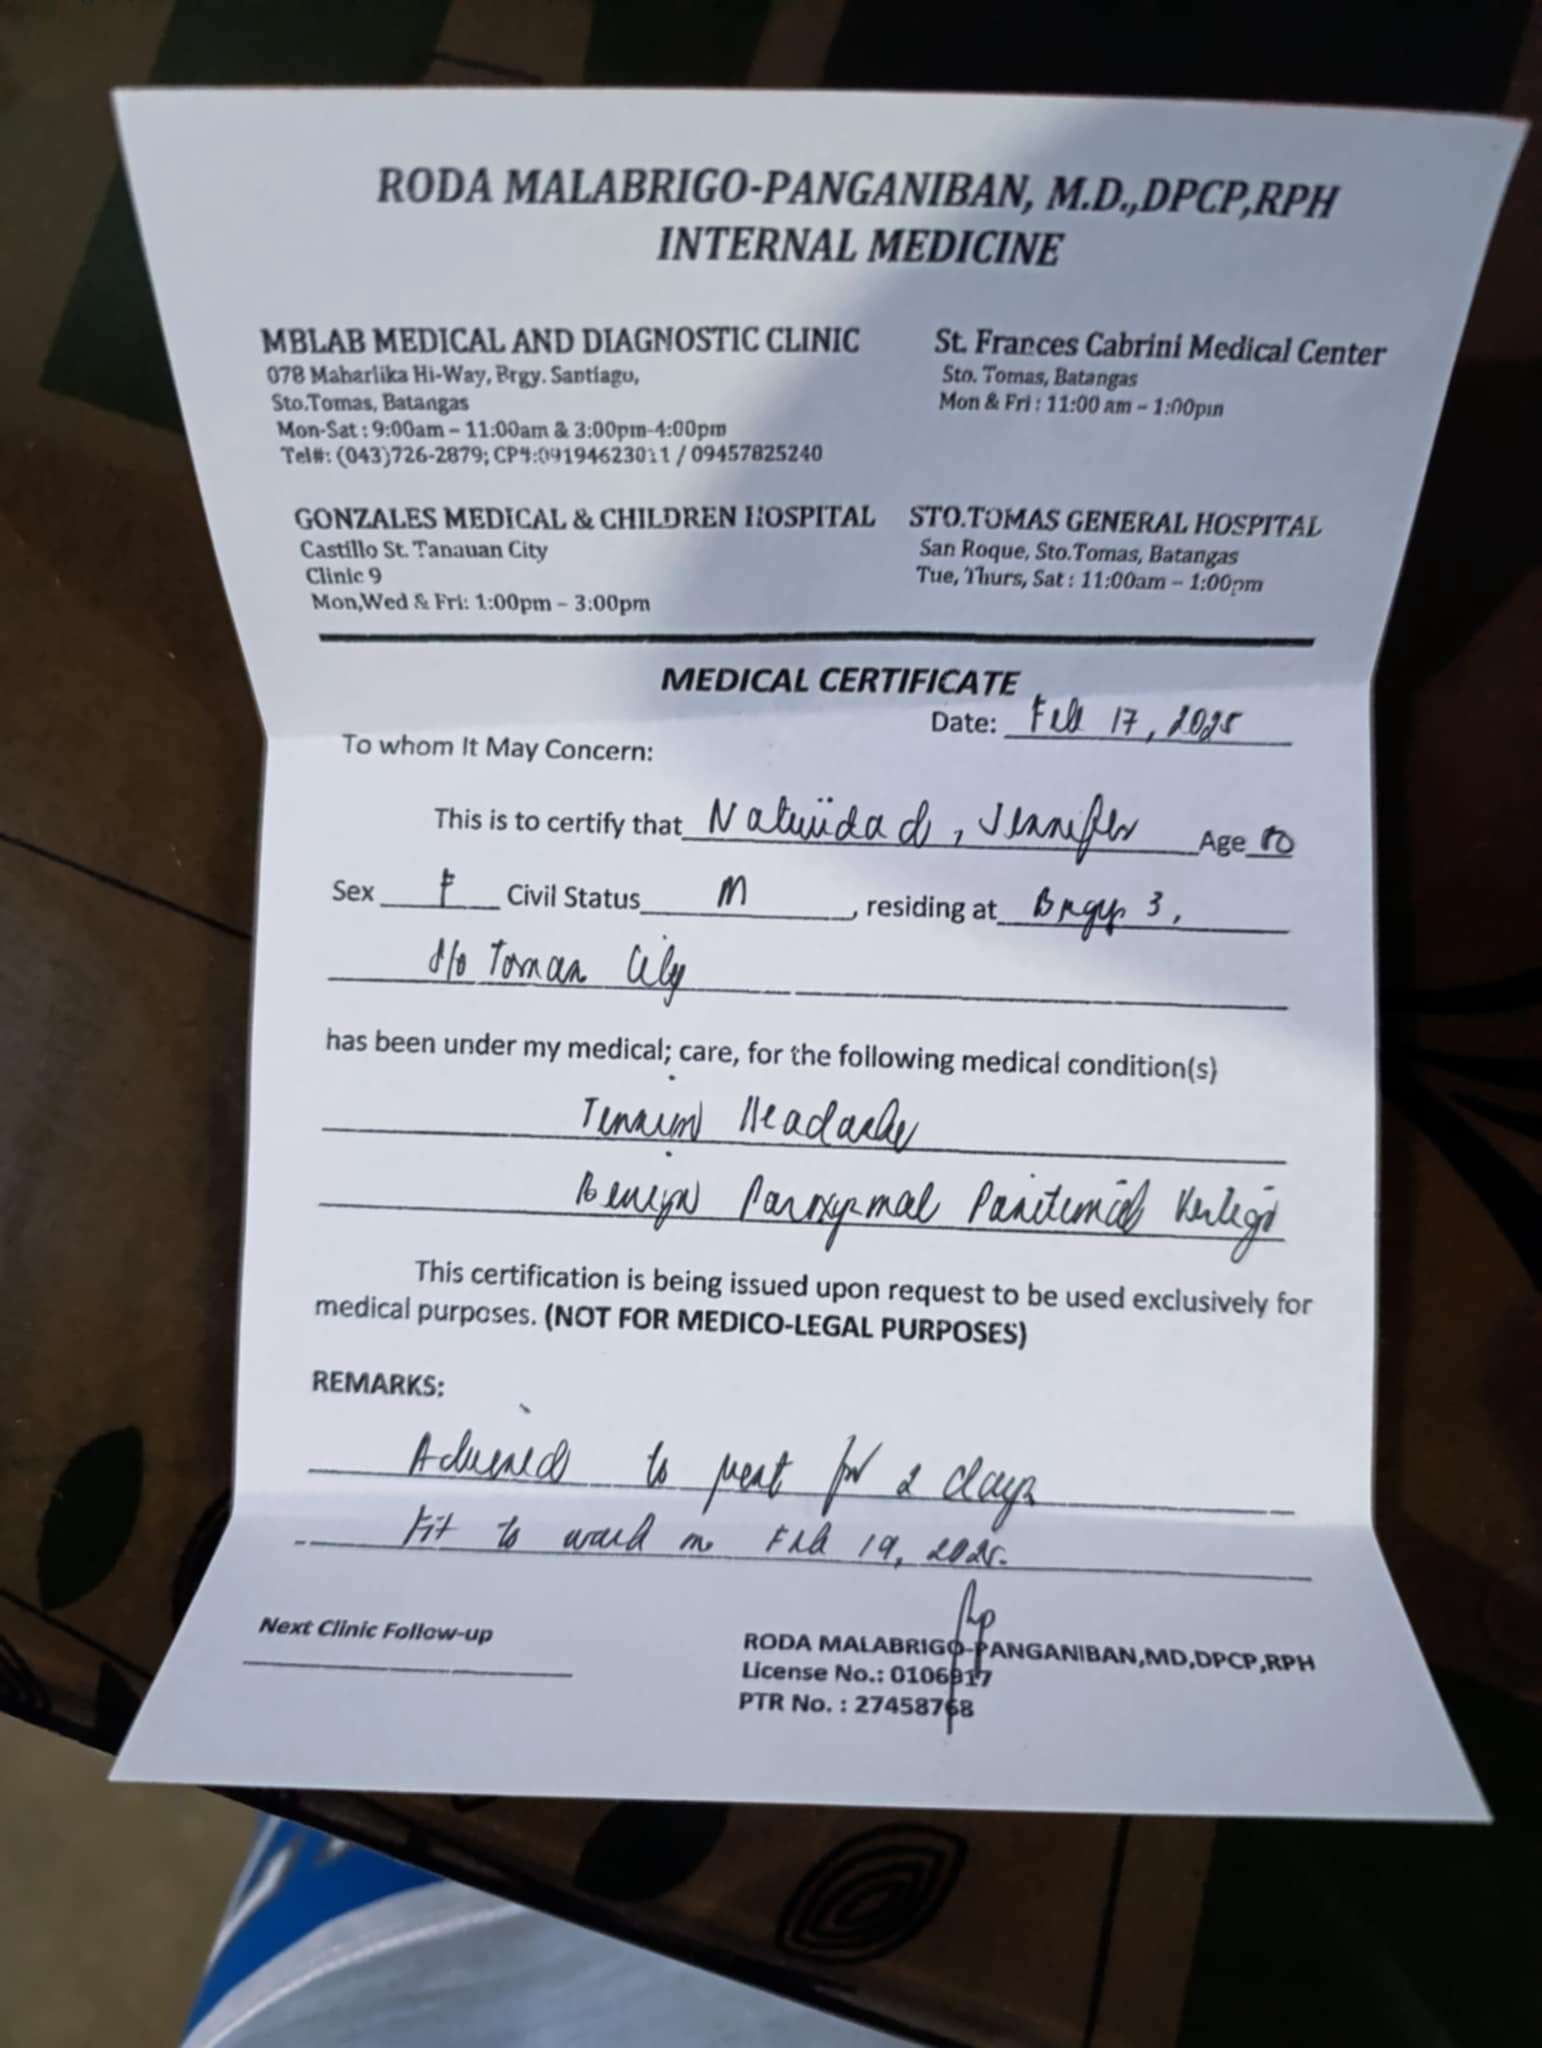 RODA MALABRIGO-PANGANIBAN, M.D.,DPCP,RPH
INTERNAL MEDICINE
MBLAB MEDICAL AND DIAGNOSTIC CLINIC
078 Maharlika Hi-Way, Brgy. Santiago,
Sto.Tomas, Batangas
Mon-Sat : 9:00am – 11:00am & 3:00pm-4:00pm
Tel#: (043)726-2879; CP#:09194623011 / 09457825240
St. Frances Cabrini Medical Center
Sto. Tomas, Batangas
Mon & Fri : 11:00 am – 1:00pm
GONZALES MEDICAL & CHILDREN HOSPITAL
Castillo St. Tanauan City
Clinic 9
Mon,Wed & Fri: 1:00pm – 3:00pm
STO.TOMAS GENERAL HOSPITAL
San Roque, Sto.Tomas, Batangas
Tue, Thurs, Sat : 11:00am – 1:00pm
MEDICAL CERTIFICATE
Date: Feb 17, 2025
To whom It May Concern:
This is to certify that Natividad, Jennifer Age
Sex F Civil Status M, residing at Brgy 3,
Sto Tomas City
has been under my medical; care, for the following medical condition(s)
Tension Headache
Benign Paroxysmal Positional Vertigo
This certification is being issued upon request to be used exclusively for
medical purposes. (NOT FOR MEDICO-LEGAL PURPOSES)
REMARKS:
Advised to rest for 2 days
Fit to work on Feb 19, 2025.
Next Clinic Follow-up
RODA MALABRIGO-PANGANIBAN,MD,DPCP,RPH
License No.: 0106917
PTR No. : 27458768